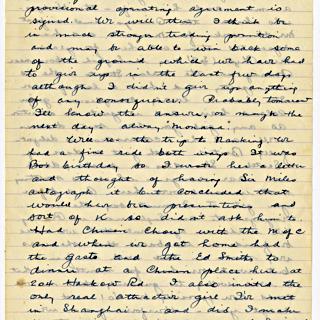 provisional operating agreement is
signed. We will then I think be
in much stronger trading position
and may be able to win back some
of the ground which we have had
to give up in the last few days
although I didn't give up anything
of any consequence. Probably tomorrow
I'll know the answer, or maybe the
next day, alway "Manana".
Well re the trip to Nanking. We
had a fine ride both ways. It was
Bob's birthday so I wrote her a letter
and thought of having Sir Miles
autograph it but concluded that
would have been presumptious and
sort of K so did not ask him to
Had Chinese Chow with the M of C
and when we got home had
the Gasts and the Ed Smiths to
dinner at a Chinese place here at
204 Hankow Rd. I also invited the
only real attractive girl I've met
in Shanghai and did I make